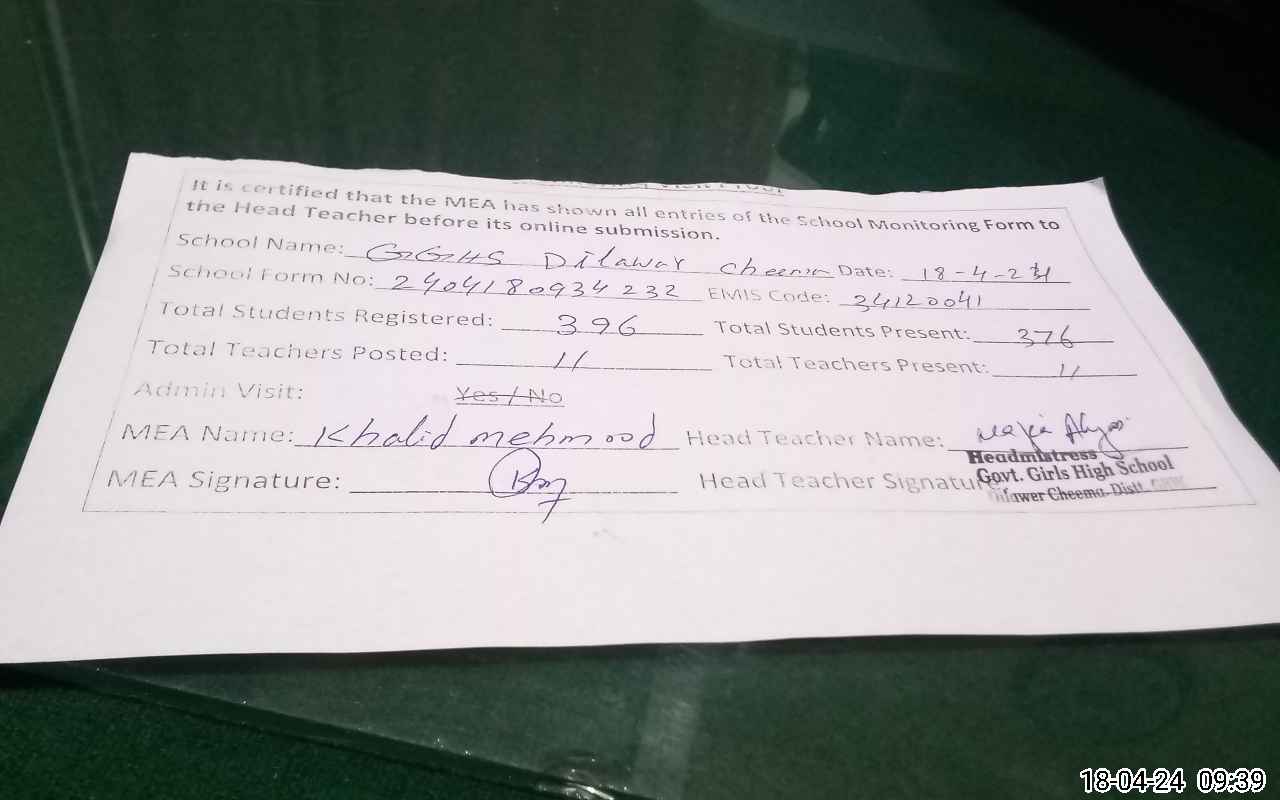 It is certified that the MEA has shown all entries of the School Monitoring Form to
the Head Teacher before its online submission.
School Name: GGHS Dilawar Cheema Date: 18-4-24
School Form No: 2404180934232 EMIS Code: 34120041
Total Students Registered: 396 Total Students Present: 376
Total Teachers Posted: 11 Total Teachers Present: 11
Admin Visit: Yes / No
MEA Name: Khalid mehmood Head Teacher Name:
Headmistress
MEA Signature: Head Teacher Signature
Govt. Girls High School
Dilawer Cheema. Distt.
18-04-24 09:39